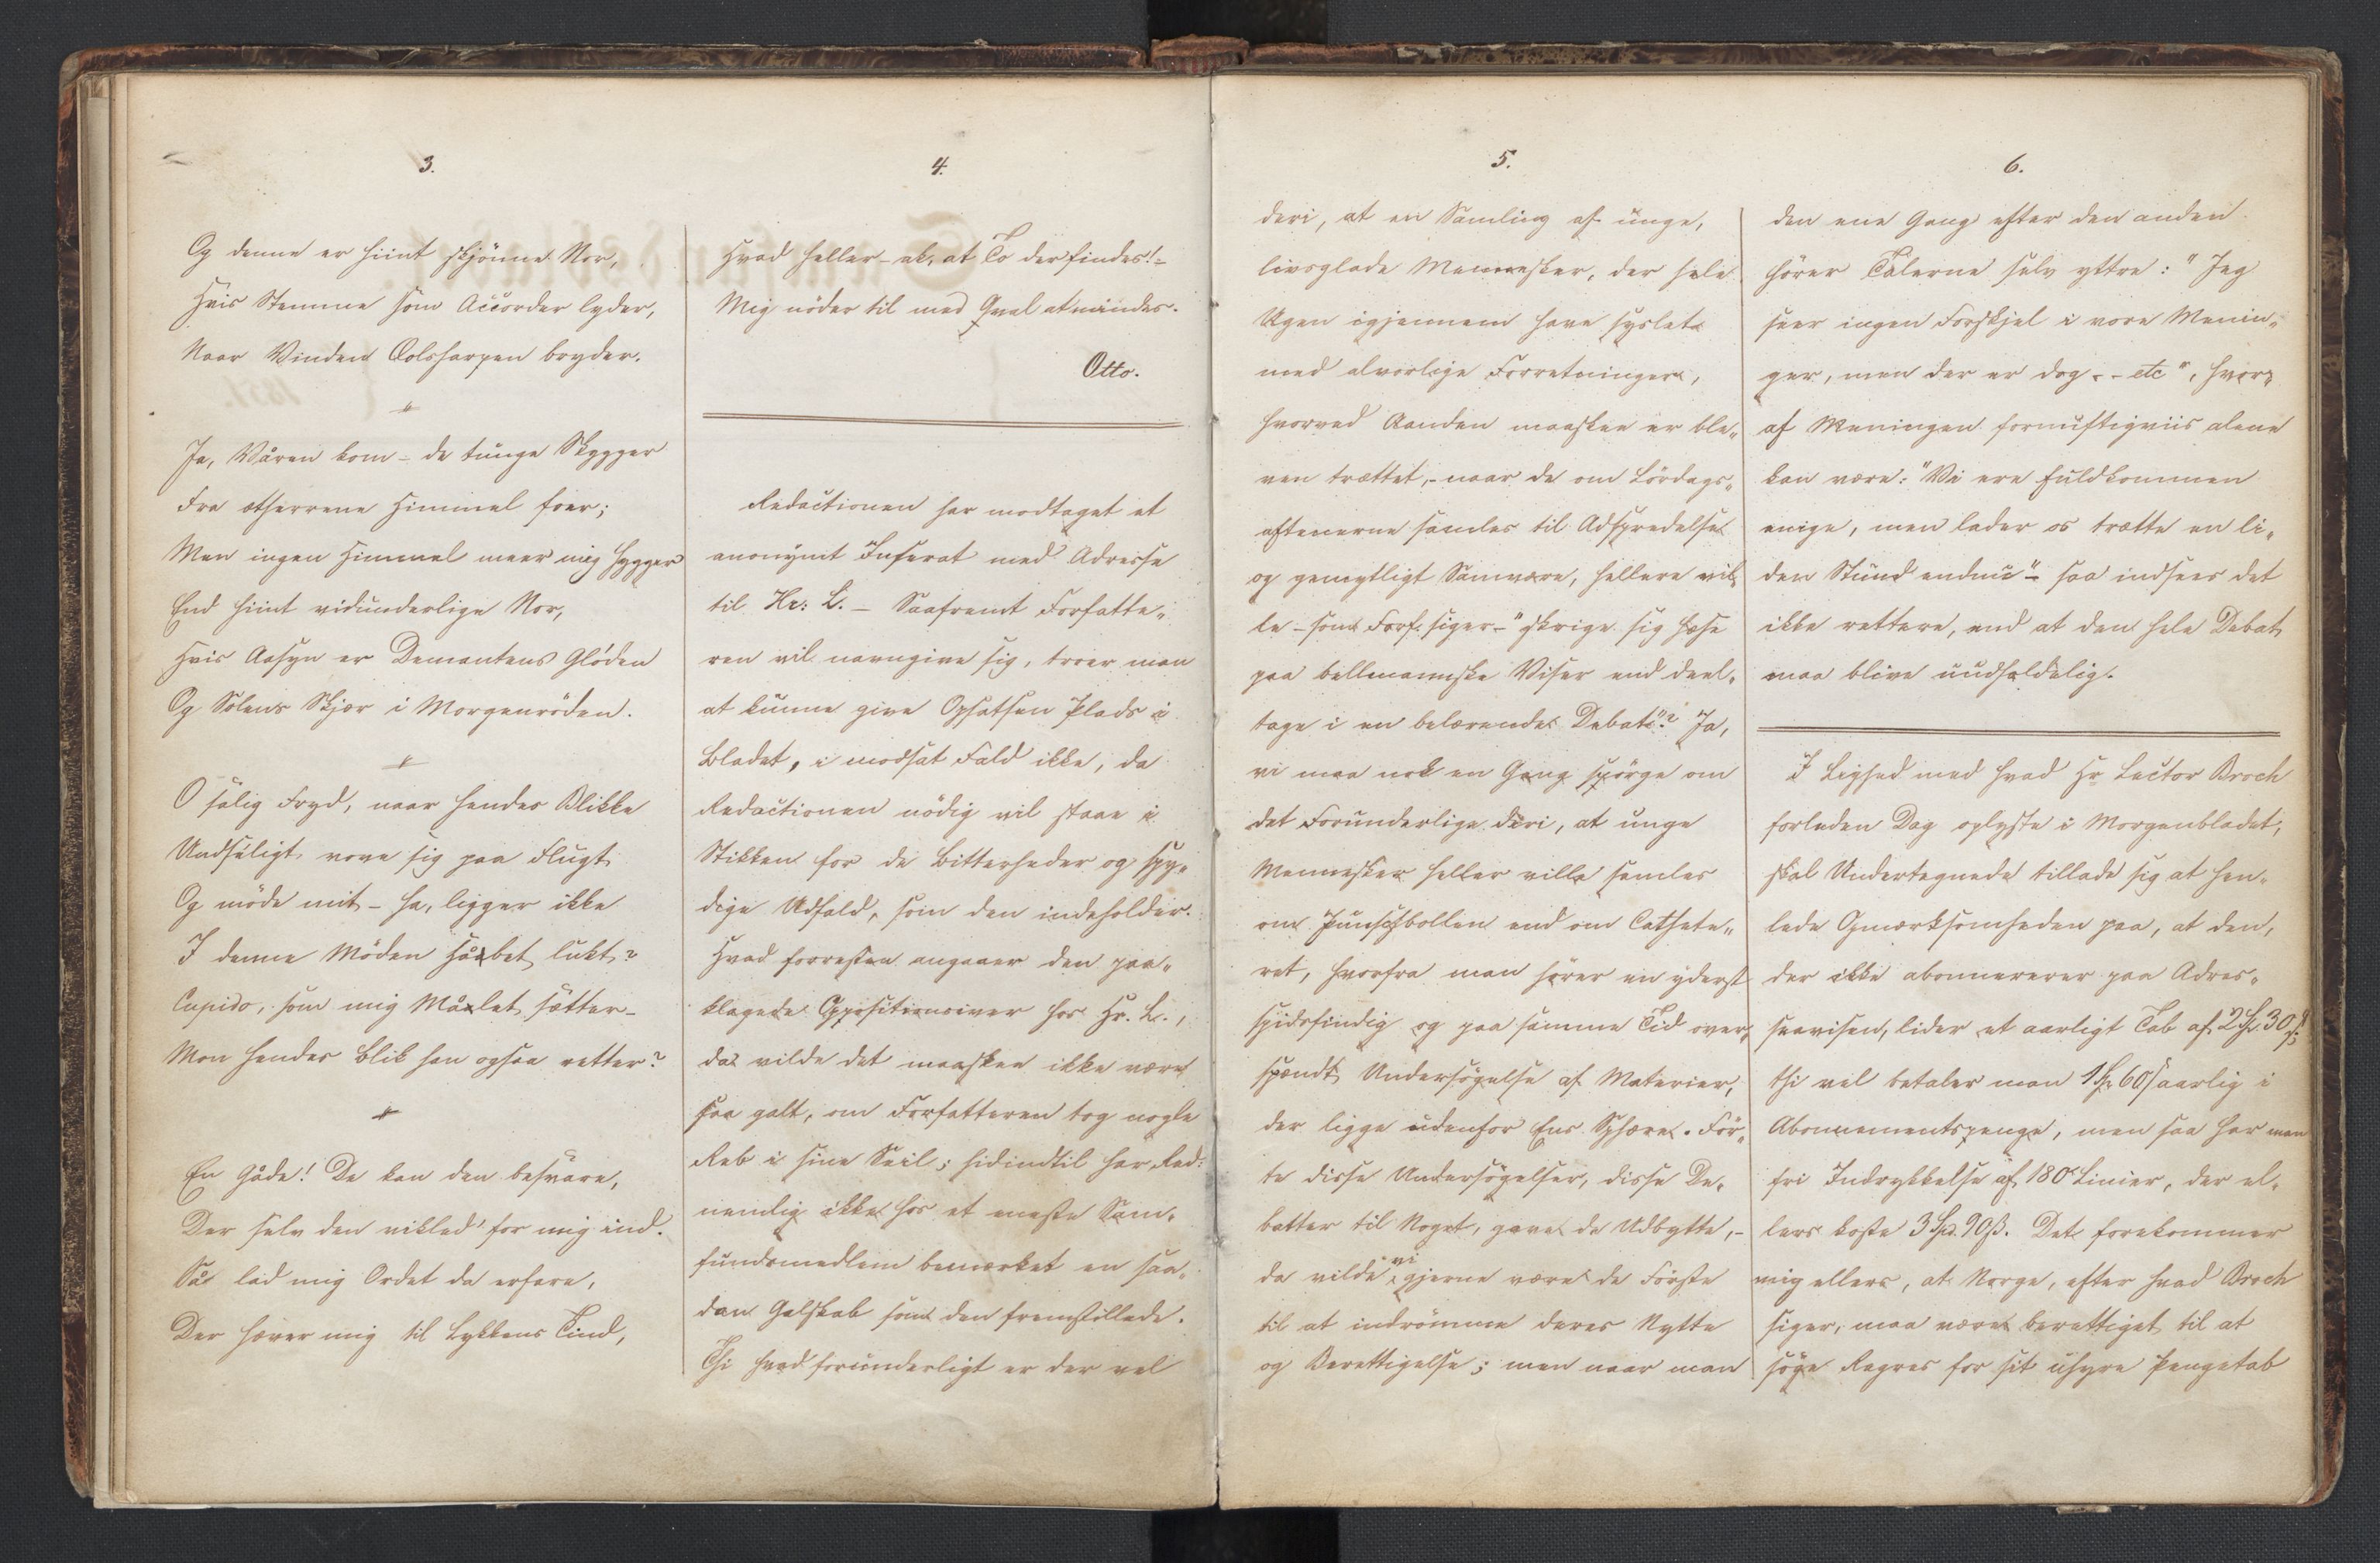 3.
Og denne er hiint skjönne Nor,
Hvis Stemme som Accorder lyder,
Naar Vinden Æolsharpen bryder.
Ja, Våren kom – de tunge Skygger
Fra ætherrene Himmel foer;
Men ingen Himmel meer mig hygger
End hiint vidunderlige Nor,
Hvis Aasyn er Demantens Glöden
Og Solens Skjær i Morgenröden.
O salig Fryd, naar hendes Blikke
Undseligt vove sig paa Flugt
Og möde mit – ha, ligger ikke
I denne Möden Håbet lukt?
Cupido, som mig Målet sætter –
Mon hendes Blik han ogsaa retter?
En Gåde! De kan den besvare,
Der selv den vikled' for mig ind.
Så lad mig Ordet da erfare,
Der hæver mig til Lykkens Tind,
4.
Hvad heller – ak, at To der findes! –
Mig nöder til med Qval at mindes.
Otto.
Redactionen har modtaget et
anonymt Inserat med Adresse
til Hr: L. – Saafremt Forfatte„
ren vil navngive sig, troer man
at kunne give Opsatsen Plads i
Bladet, i modsat Fald ikke, da
Redactionen nödig vil staae i
Stikken for de Bitterheder og spy„
dige Udfald, som den indeholder.
Hvad forresten angaaer den paa„
klagede Oppositionsiver hos Hr. L.,
da vilde det maaskee ikke være
saa galt, om Forfatteren tog nogle
Reb i sine Seil; hidindtil har Red:
nemlig ikke hos et eneste Sam„
fundsmedlem bemærket en saa„
dan Galskab som den fremstillede.
Thi hvad forunderligt er der vel
5.
deri, at en Samling af unge,
livsglade Mennesker, der hele
Ugen igjennem have syslet
med alvorlige Forretninger,
hvorved Aanden maaskee er ble„
ven trættet, – naar de om Lördags„
aftenerne samles til Adspredelse
og gemytligt Samvære, hellere vil„
le – som Forf. siger – "skrige sig hæse
paa bellmannske Viser end deel„
tage i en belærende Debat"? Ja,
vi maa nok en Gang spörge om
det Forunderlige deri, at unge
Mennesker heller ville samles
om Punschbollen end om Cathete„
ret, hvorfra man hörer en yderst
spidsfindig og paa samme Tid over„
spændt Undersögelse af Materier,
der ligge udenfor Ens Sphære. För„
te disse Undersögelser, disse De„
batter til Noget, gave de Udbytte, –
da vilde vi gjerne være de Förste
til at indrömme deres Nytte
og Berettigelse; men naar man
6.
den ene Gang efter den anden
hörer Talerne selv yttre: "Jeg
seer ingen Forskjel i vore Menin„
ger, men der er dog – – etc", hvor„
af Meningen fornuftigviis alene
kan være: "Vi ere fuldkommen
enige, men lader os trætte en li„
den Stund endnu" – saa indsees det
ikke rettere, end at den hele Debat
maa blive uudholdelig.
I Lighed med hvad Hr Lector Broch
forleden Dag oplyste i Morgenbladet,
skal Undertegnede tillade sig at hen„
lede Opmærksomheden paa, at den,
der ikke abonnererer paa Adres„
seavisen, lider et aarligt Tab af 2 Sp. 30 ß;
thi vel betaler man 1 Sp 60 ß aarlig i
Abonnementspenge, men saa har man
fri Indrykkelse af 180 Linier, der el„
lers koste 3 Sp. 90 ß. Det forekommer
mig ellers, at Norge, efter hvad Broch
siger, maa være berettiget til at
söge Regres for sit uhyre Pengetab